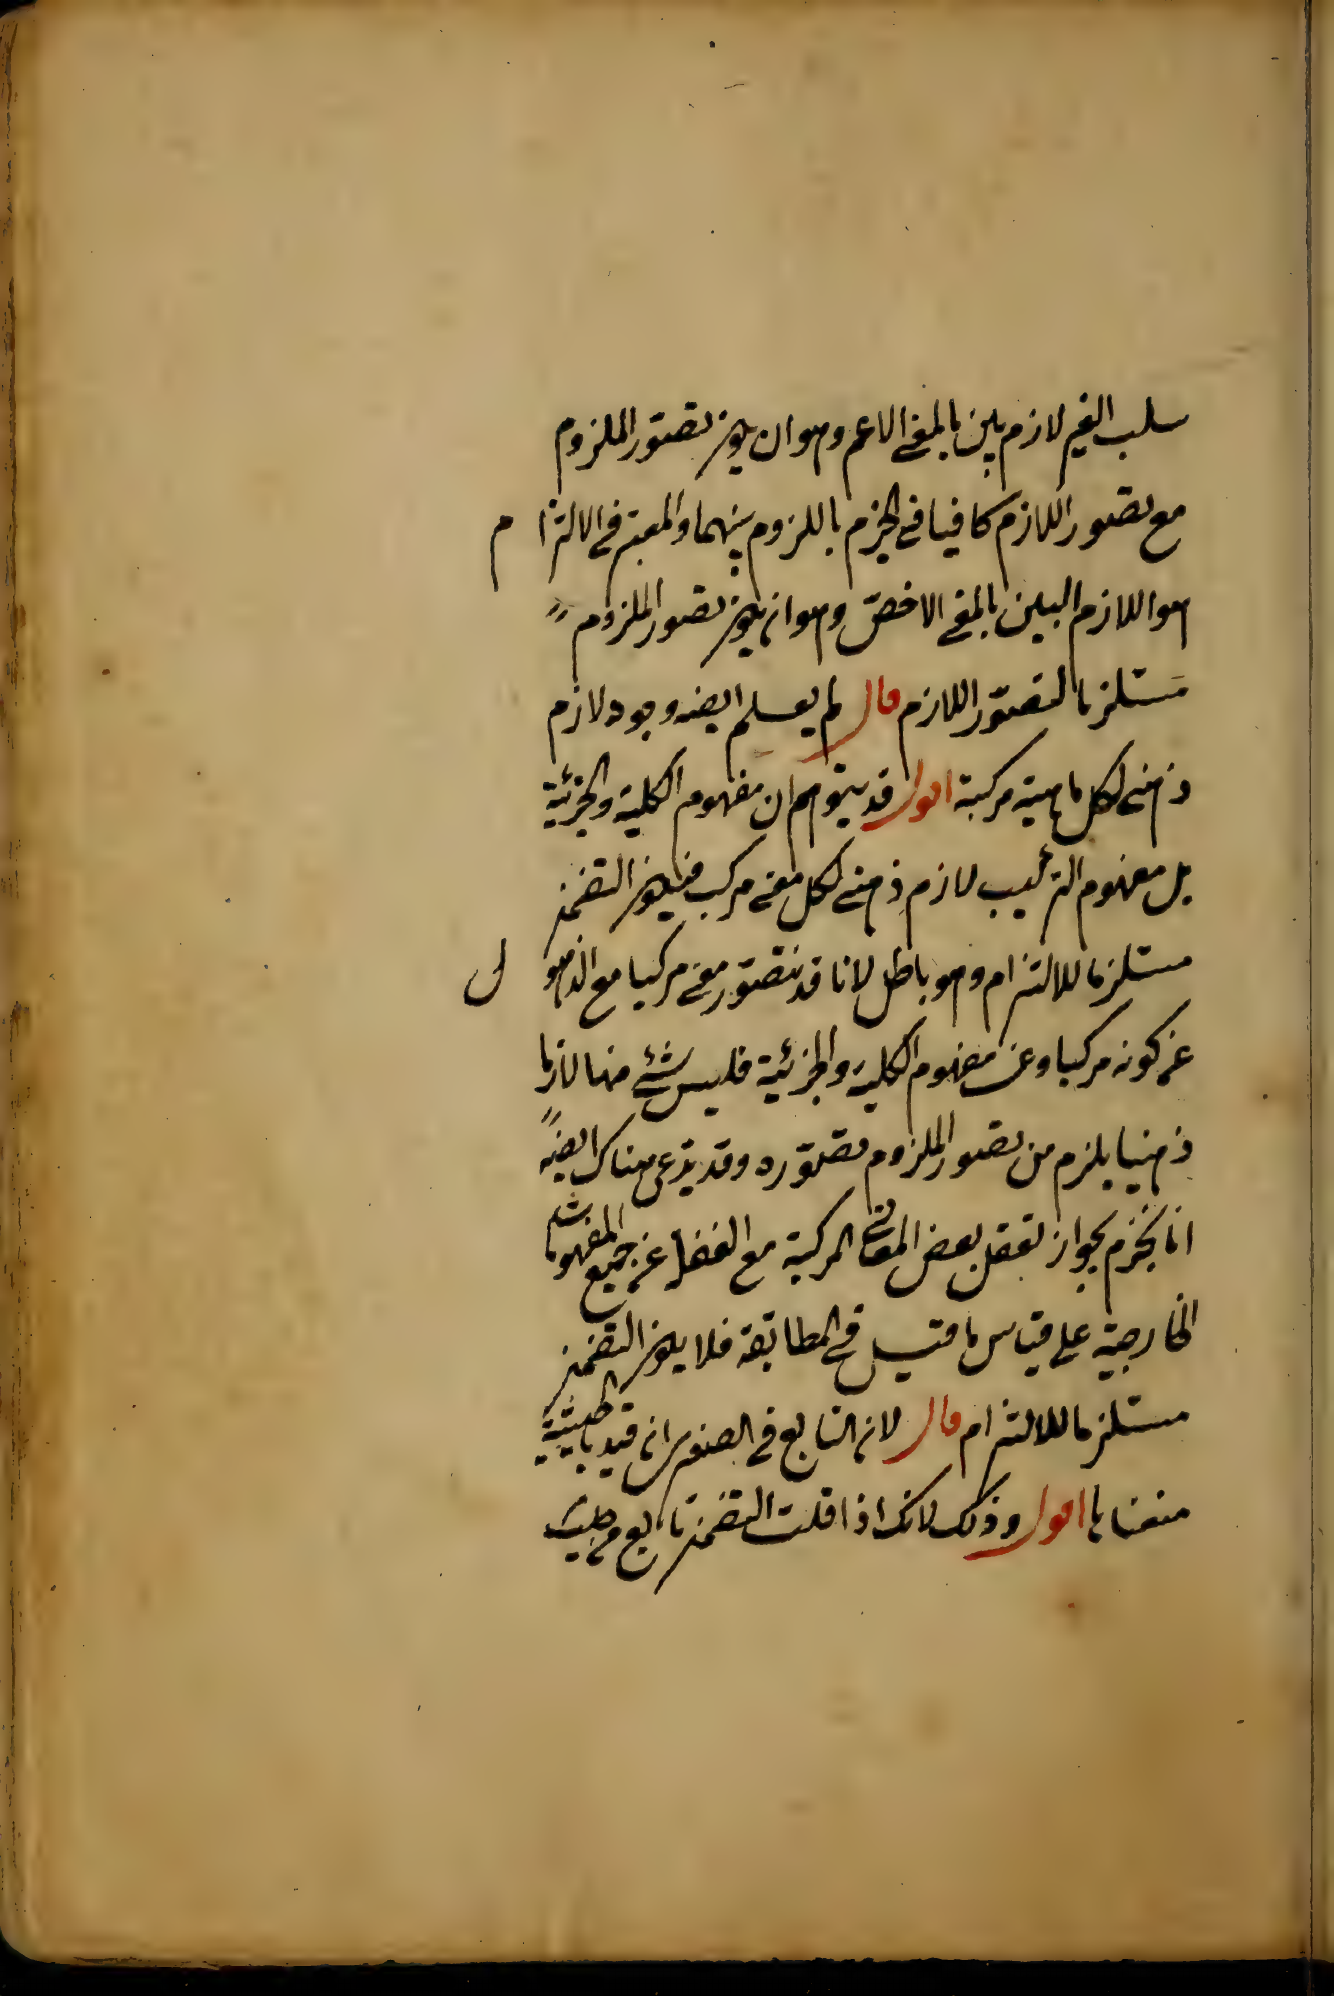 سلب الغير لازم بين بالمعنى الاعم وهو ان يكون تصور الملزوم
مع تصور اللازم كافيا في الجزم باللزوم بينهما والمعتبر في الالتزام
هو اللازم البين بالمعنى الاخصّ وهو ان يكون تصور الملزوم
مستلزما لتصوّر اللازم قال لم يعلم ايضه وجود لازم
ذهني لكل ماهية مركبة اقول قد يتوهم ان مفهوم الكلية والجزئية
بل مفهوم التركيب لازم ذهني لكل معنى مركب فيكون التضمن
مستلزما للالتزام وهو باطل لانا قد نتصوّر معنى مركبا مع الذهول
عن كونه مركبا وعن مفهوم الكلية والجزئية فليس شئ منها لازما
ذهنيا يلزم من تصور الملزوم تصوّره وقد يدّعى هناك ايضه
انا نجزم بجواز تعقل بعض المعاني المركبة مع الغفلة عن جميع المفهومات
الخارجية على قياس ما قيل في المطابقة فلا يكون التضمن
مستلزما للالتزام قال لان التابع في الصغرى ان قيد بالحيثية
منعناها اقول وذلك لانك اذا قلت التضمن تابع من حيث